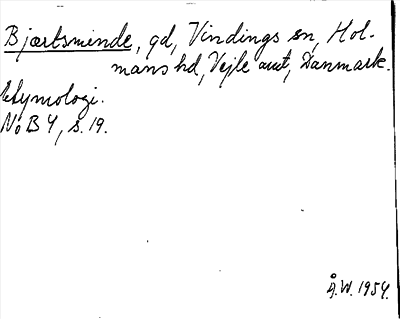 Bjærtsminde, gd, Vindings sn, Hol-
mans hd, Vejle amt, Danmark.
Etymologi.
NoB 4, s. 19.
Å.W. 1954.